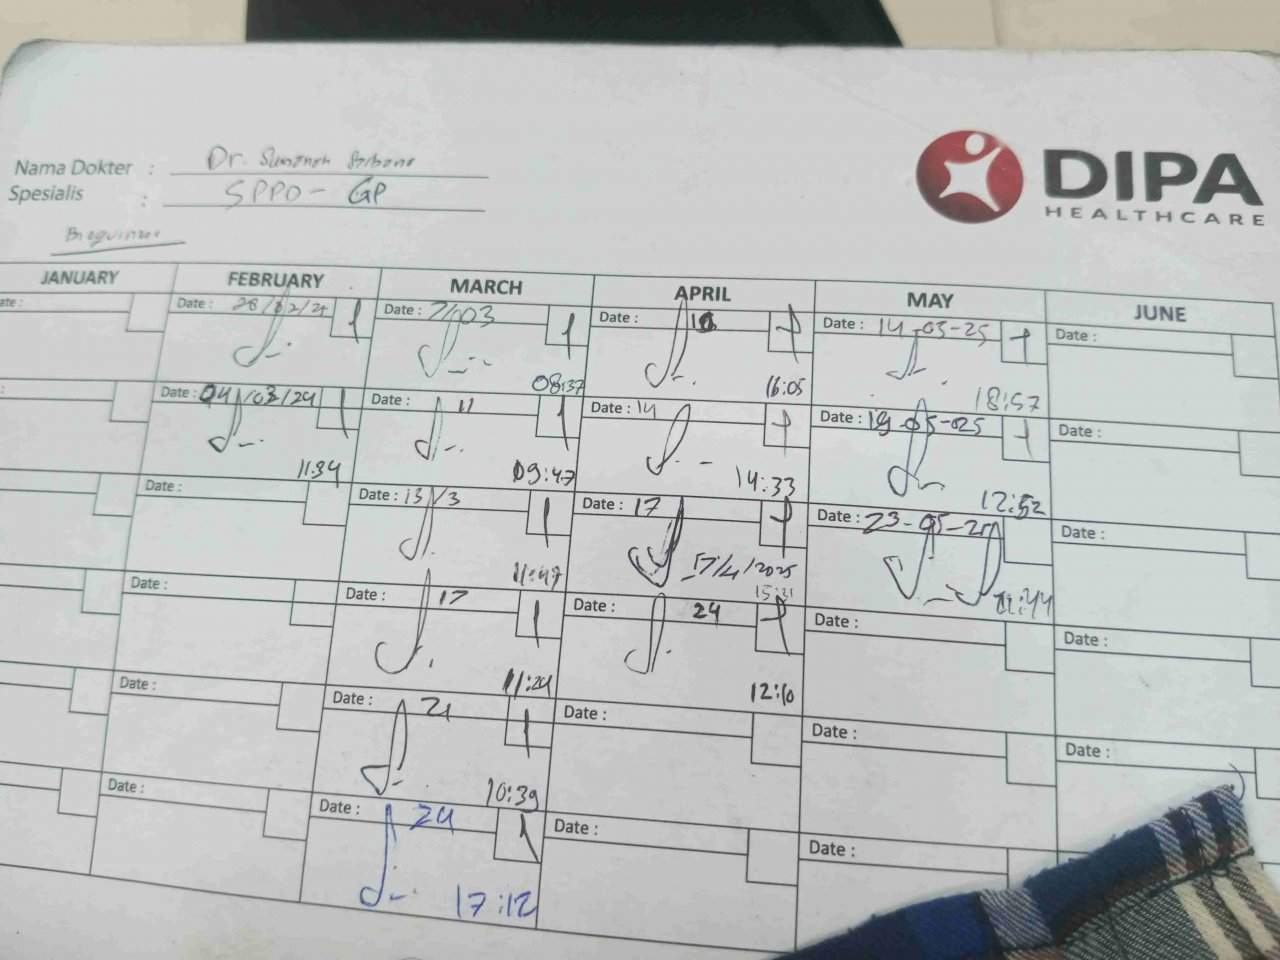 DIPA
HEALTHCARE
Nama Dokter :
Dr.
Spesialis :
SPPD - GP
JANUARY
FEBRUARY
MARCH
APRIL
MAY
JUNE
Date :
Date : 7/03
08:37
Date :
16:05
Date : 14-05-25
18:57
Date :
Date : 04/03/24
11.34
Date : 11
09:47
Date : 14
14:33
Date : 19-05-25
12:52
Date :
Date :
Date : 13/3
11:47
Date : 17
17/4/2025
15:31
Date : 23-05-25
Date :
Date :
Date : 17
11:24
Date : 24
12:10
Date :
Date :
Date :
Date : 21
10:39
Date :
Date :
Date :
Date :
Date : 24
17:12
Date :
Date :